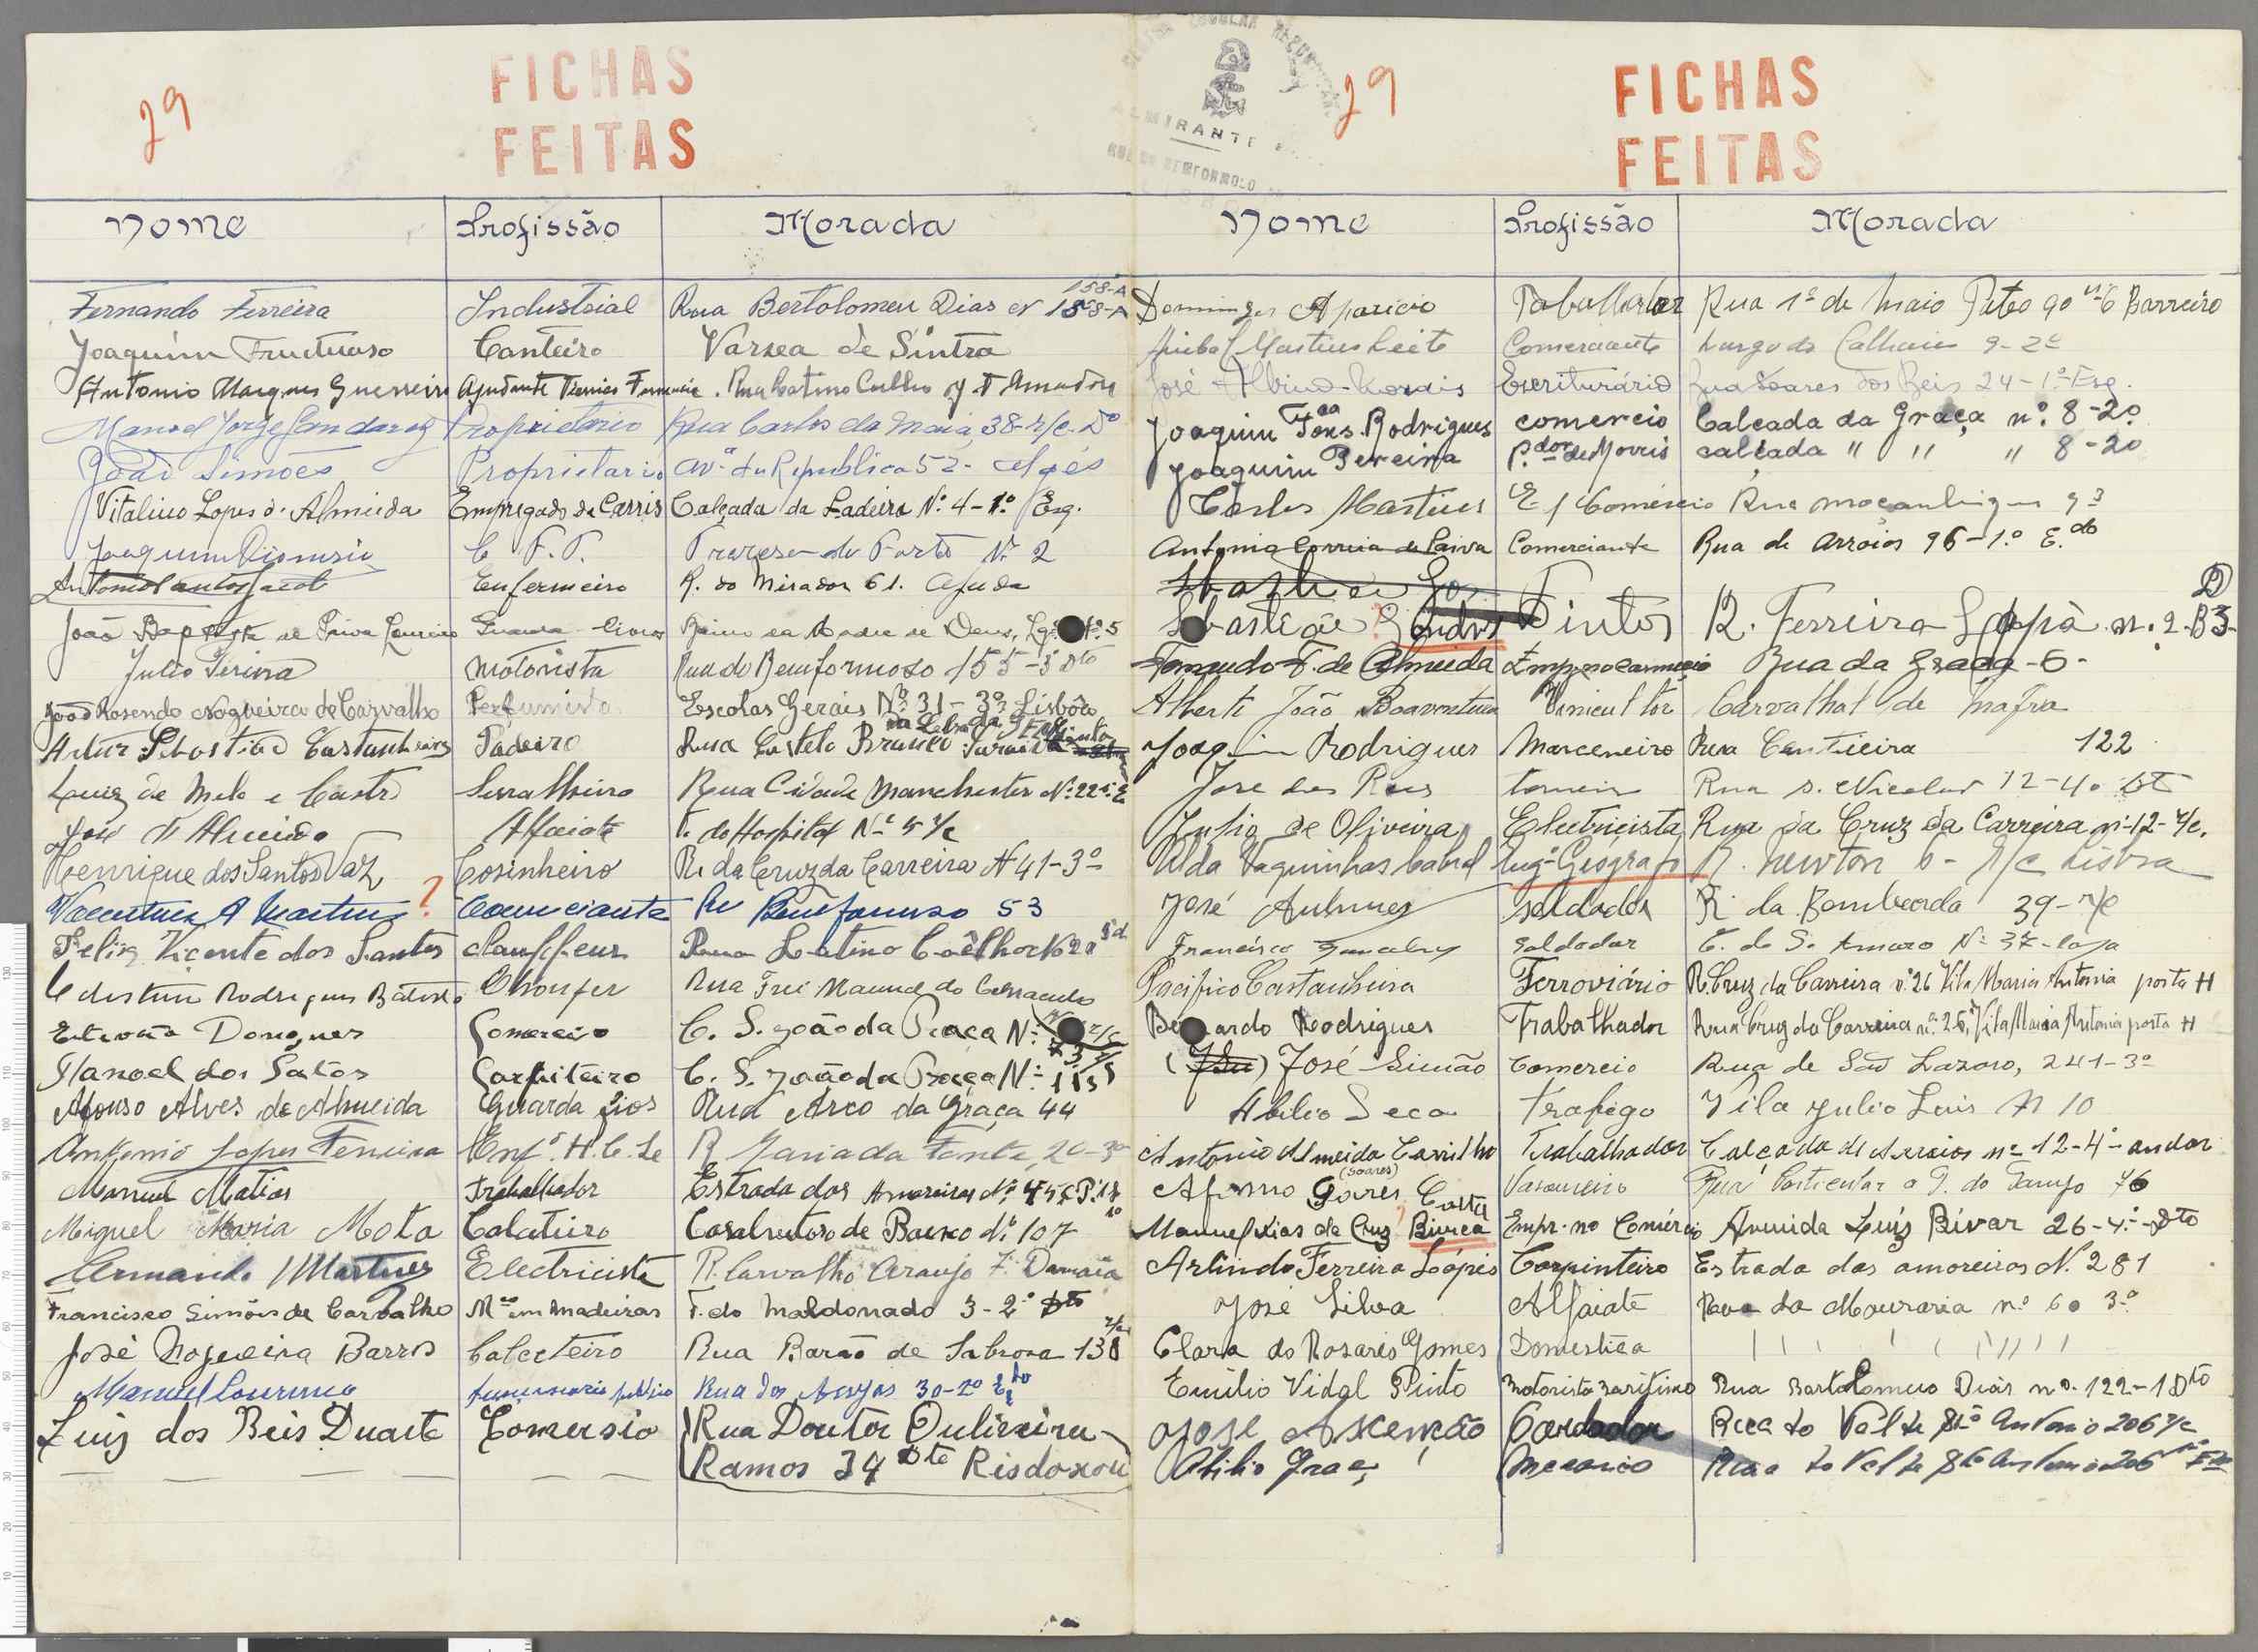 29
FICHAS
FEITAS
Nome Profissão Morada
158-A
Fernando Ferreira Industrial Rua Bertolomeu Dias nº 158-A
Joaquim Fructuoso Canteiro Varzea de Sintra
Antonio Marques Guerreiro Ajudante Tecnico Farmacia. Rua Latino Coelho
Manoel Jorge Proprietario Rua Carlos da Maia, 38-r/c. Dº
João Simões Proprietario Av.ª da Republica 52- Algés
Vitalino Lopes d'Almeida Empregado da Carris Calçada da Ladeira Nº 4-1º Esq.
Joaquim Dionisio C. F. P. Travessa do Forte Nº 2
Antonio Santos Enfermeiro R. do Mirador 61. Ajuda
João Baptista de Paiva Loureiro Guarda-livros Bairro da Madre de Deus, 5
Julio Pereira Motorista Rua do Bemformoso 155-3º Dto
João Rosendo Nogueira de Carvalho Perfumista Escolas Gerais Nº 31-3º-Lisbôa
Artur Sebastião Castanheira Padeiro Rua Castelo Branco Saraiva
Luiz de Melo e Castro Serralheiro Rua Cidade Manchester Nº 22
José d'Almeida Alfaiate T. do Hospital Nº 5 r/c
Henrique dos Santos Vaz Cosinheiro R. da Cruz da Carreira Nº 41-3º
Valentim A Martins ? Comerciante Ru Bemformoso 53
Felix Vicente dos Santos chauffeur Rua Latino Coêlho Nº 20
Celestino Rodrigues Batista Choufer Rua Frei Manuel do Cenaculo
Estevão Domingues Comercio C. S. João da Praça Nº
Manoel dos Satos Carpiteiro C. S. João da Praça Nº
Afonso Alves de Almeida Guarda fios Rua Arco da Graça 44
Antonio Lopes Ferreira Enfº. H. C. L. R Maria da Fonte, 20-3º
Manuel Matias Trabalhador Estrada das Amoreiras Nº
Miguel Maria Mota Calceteiro Casalventoso de Baixo Nº 107
Armando Martins Electricista R. Carvalho Araujo 7. Damaia
Francisco Simões de Carvalho Mco em Madeiras T. do Maldonado 3-2º Dto
José Nogueira Barros Calceteiro Rua Barão de Sabrosa 138 r/c
Manuel Lourenço funcionario publico Rua dos Anjos 30-2º Edo
Luiz dos Reis Duarte Comersio Rua Doutôr Ouliveira
Ramos 34 Dte
29
FICHAS
FEITAS
ALMIRANTE
Nome Profissão Morada
Domingos Aparicio Trabalhador Rua 1º de Maio Pateo 90 nº 6 Barreiro
Anibal Martins Leite Comerciante Largo do Calhariz 9-2º
José Albino Morais Escriturário Rua Soares dos Reis 24-1º-Esq.
Joaquim Fons. Rodrigues comercio Calçada da Graça nº 8-2º
Joaquim Pereira calçada " " " 8-20
Carlos Martins E/ Comércio Rua Moçambique 9
Antonio Correia de Paiva Comerciante Rua de Arroios 96-1º E.do
Sebastião Pintor R. Ferreira Lapa nº 2-B3-
D
Fernando F. de Almeida Emp. no comercio Rua da Graça-6-
Alberto João Boaventura Vinicultor Carvalhal de Mafra
Joaquim Rodrigues Marceneiro Rua Cantieira 122
José dos Reis torneiro Rua S. Nicolau 12-4º Dt
Julio de Oliveira Electricista Rua da Cruz da Carreira nº-12-r/c.
Alda Vaquinhas Cabral Engº Geógrafo R. Newton 6- R/c Lisboa
José Antunes soldador R. da Bombarda 39-r/c
Francisco Gonçalves soldador C. de S. Amaro Nº 37-loja
Pacifico Castanheira Ferroviário R. Cruz da Carreira nº 26 Vila Maria Antonia porta H
Bernardo Rodrigues Trabalhador Rua Cruz da Carreira nº 26, Vila Maria Antonia porta H
José Simão Comercio Rua de São Lazaro, 241-3º
Abilio Seca Trafego Vila Julio Luis Nº 10
Antonio Almeida Carrilho Trabalhador Calçada de Arroios nº 12-4º-andar
(Soares)
Afonso Soares Costa Rua Particular 76
Manuel Dias da Cruz ? Empr. no Comércio Avenida Luís Bívar 26-4º-Dto
Arlindo Ferreira Lópes Carpinteiro Estrada das amoreiras Nº 281
José Silva Alfaiate Rua da Mouraria nº 60 3º
Clara do Rosario Gomes Domestica
Emilio Vidal Pinto Motorista Maritimo Rua Bartolomeu Dias nº-122-1ºDto
José Ascenção Cardador Rua do Vale de Stº Antonio 206 r/c
Abilio Graça Mecanico Rua do Vale de Stº Antonio 206